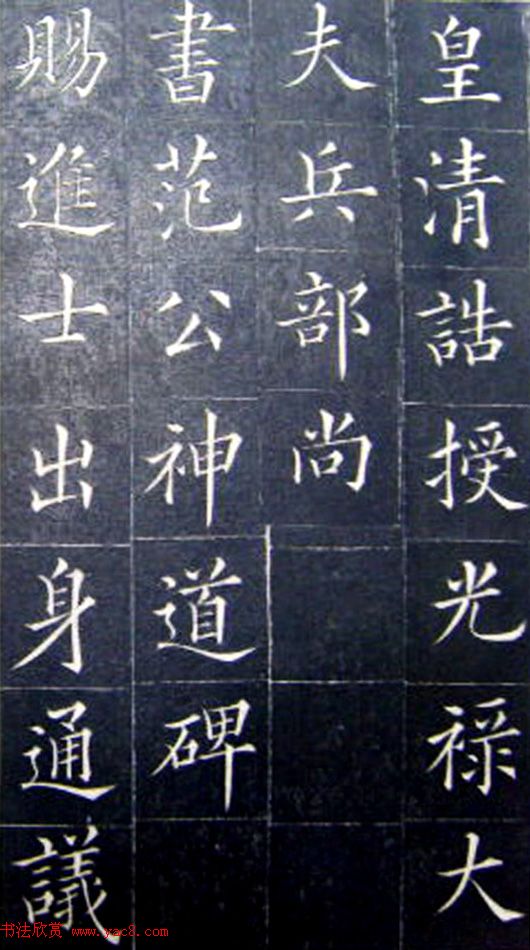 皇清誥授光祿大
夫兵部尚
書范公神道碑
賜進士出身通議
书法欣赏 www.yac8.com